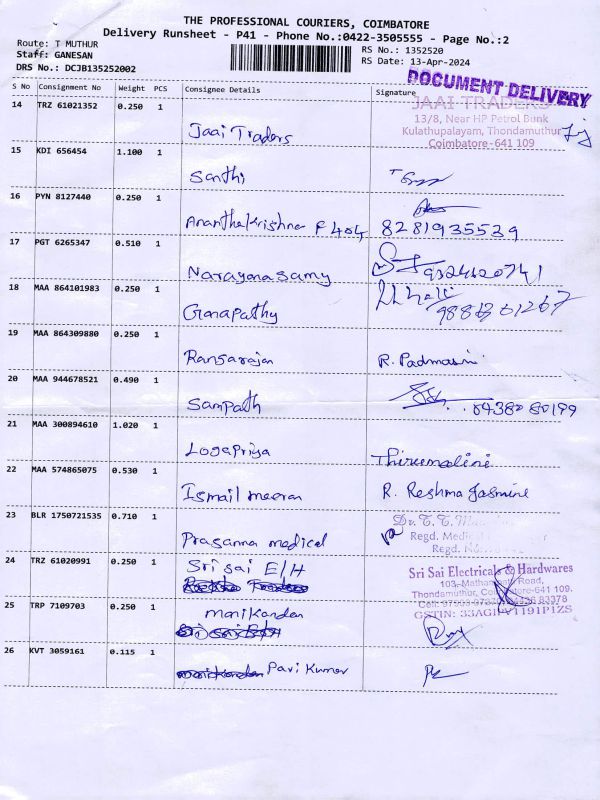 THE PROFESSIONAL COURIERS, COIMBATORE
Delivery Runsheet - P41 - Phone No.:0422-3505555 - Page No.:2
Route: T MUTHUR
Staff: GANESAN
DRS No.: DCJB135252002
RS No.: 1352520
RS Date: 13-Apr-2024
S No Consignment No Weight PCS Consignee Details Signature
DOCUMENT DELIVERY
JAAI TRADERS
13/8, Near HP Petrol Bunk
Kulathupalayam, Thondamuthur
Coimbatore-641 109
14 TRZ 61021352 0.250 1 Jaai Traders
15 KDI 656454 1.100 1 Santhi
16 PYN 8127440 0.250 1 Ananthakrishna F404 8281935539
17 PGT 6265347 0.510 1 Narayanasamy 9324620741
18 MAA 864101983 0.250 1 Ganapathy
19 MAA 864309880 0.250 1 Rangarajan R. Padmasini
20 MAA 944678521 0.490 1 Sampath
21 MAA 300894610 1.020 1 Logapriya Thirumalini
22 MAA 574865075 0.530 1 Ismail meeran R. Reshma Jasmine
23 BLR 1750721535 0.710 1 Prasanna medical
Regd.
Regd.
24 TRZ 61020991 0.250 1 Sri sai E/H
Sri Sai Electricals & Hardwares
Road,
Thondamuthur, Coimbatore-641 109.
25 TRP 7109703 0.250 1 manikanden
26 KVT 3059161 0.115 1 Pavi Kumar